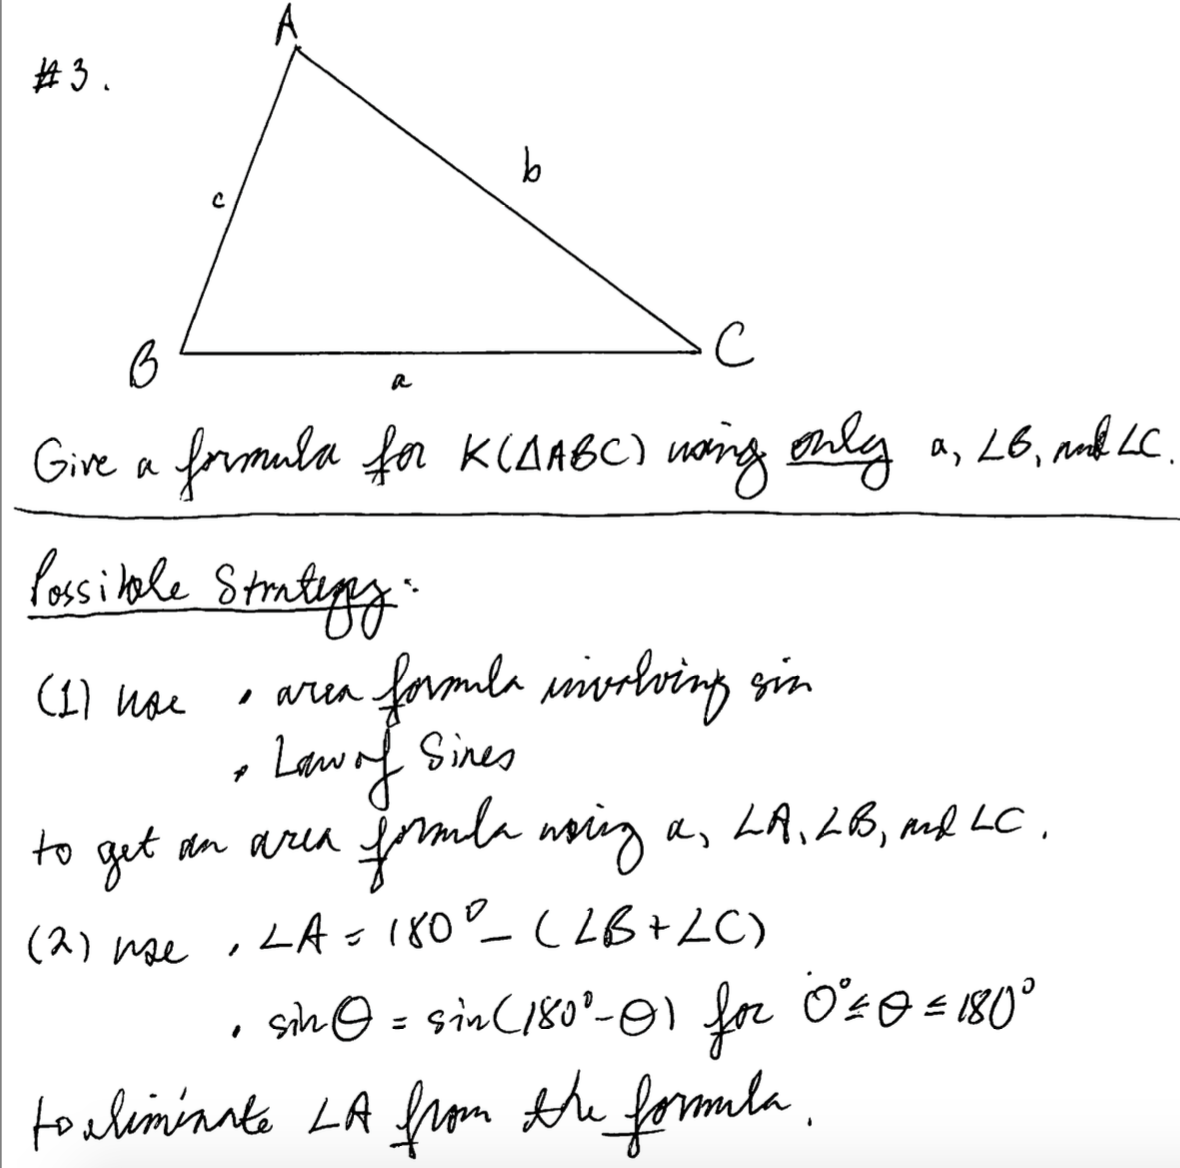 A
#3.
b
c
B
C
a
Give a formula for K(△ABC) using only a, ∠B, and ∠C.
Possible Strategy:
(1) use • area formula involving sin
• Law of Sines
to get an area formula using a, ∠A, ∠B, and ∠C.
(2) use • ∠A = 180° - (∠B + ∠C)
• sin θ = sin(180° - θ) for 0° ≤ θ ≤ 180°
to eliminate ∠A from the formula.